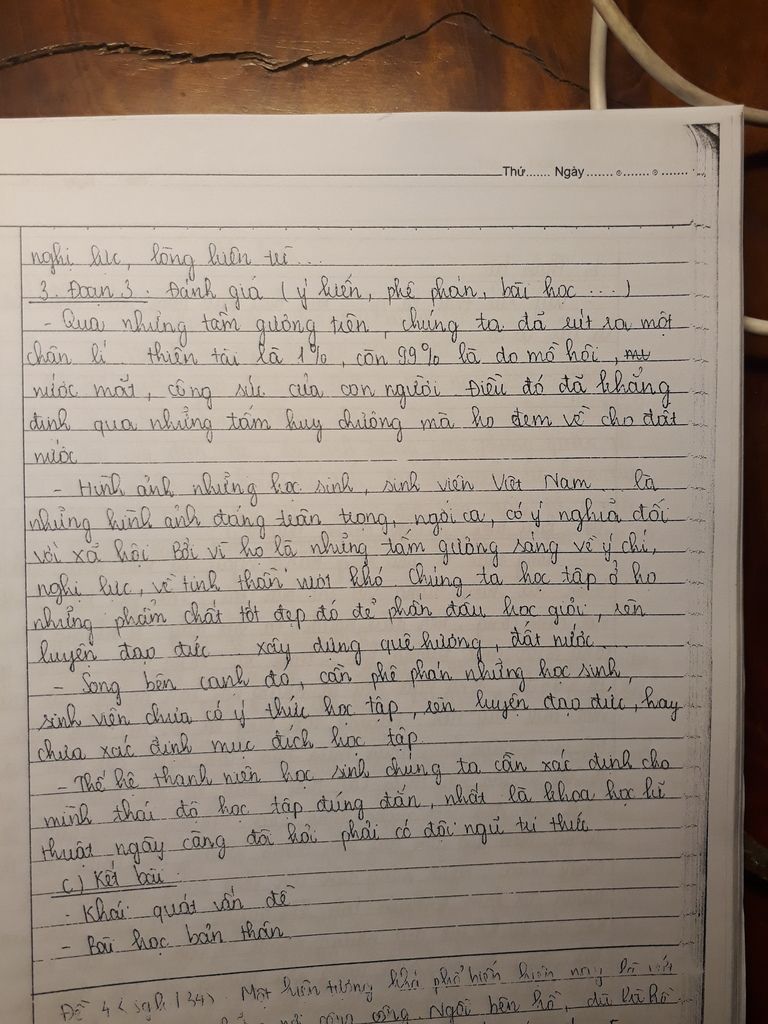 Thứ....... Ngày....... ........ .......
nghị lực, lòng kiên trì...
3. Đoạn 3. Đánh giá (ý kiến, phê phán, bài học ...)
- Qua những tấm gương trên, chúng ta đã rút ra một
chân lí thiên tài là 1%, còn 99% là do mồ hôi,
nước mắt, công sức của con người. Điều đó đã khẳng
định qua những tấm huy chương mà họ đem về cho đất
nước
- Hình ảnh những học sinh, sinh viên Việt Nam là
những hình ảnh đáng trân trọng, ngợi ca, có ý nghĩa đối
với xã hội. Bởi vì họ là những tấm gương sáng về ý chí,
nghị lực, về tinh thần vượt khó. Chúng ta học tập ở họ
những phẩm chất tốt đẹp đó để phấn đấu học giỏi, rèn
luyện đạo đức xây dựng quê hương, đất nước
- Song bên cạnh đó, cần phê phán những học sinh,
sinh viên chưa có ý thức học tập, rèn luyện đạo đức, hay
chưa xác định mục đích học tập
- Thế hệ thanh niên học sinh chúng ta cần xác định cho
mình thái độ học tập đúng đắn, nhất là khoa học kĩ
thuật ngày càng đòi hỏi phải có đội ngũ trí thức
c) Kết bài
- Khái quát vấn đề
- Bài học bản thân
Đề 4 (sgk/34). Một hiện tượng khá phổ biến hiện nay là vứt
nơi công cộng. Ngồi bên hồ, dù là hồ